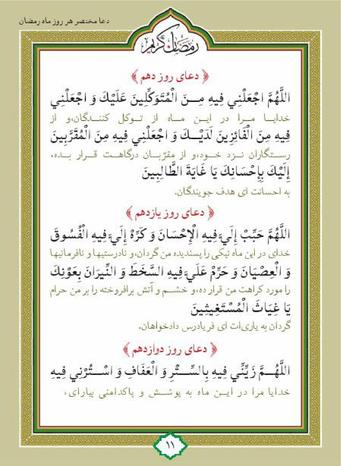 دعا مختصر هر روز ماه رمضان
رمضان کریم
﴿ دعای روز دهم ﴾
اللَّهُمَّ اجْعَلْنِي فِيهِ مِنَ الْمُتَوَكِّلِينَ عَلَيْكَ وَ اجْعَلْنِي
خدایا مرا در این ماه از توکل کنندگان،و از
فِيهِ مِنَ الْفَائِزِينَ لَدَيْكَ وَ اجْعَلْنِي فِيهِ مِنَ الْمُقَرَّبِينَ
رستگاران نزد خود،و از مقرّبان درگاهت قرار بده،
إِلَيْكَ بِإِحْسَانِكَ يَا غَايَةَ الطَّالِبِينَ
به احسانت ای هدف جویندگان.
﴿ دعای روز یازدهم ﴾
اللَّهُمَّ حَبِّبْ إِلَيَّ فِيهِ الْإِحْسَانَ وَ كَرِّهْ إِلَيَّ فِيهِ الْفُسُوقَ
خدای در این ماه نیکی را پسندیده من گردان،و نادرستیها و نافرمانیها
وَ الْعِصْيَانَ وَ حَرِّمْ عَلَيَّ فِيهِ السَّخَطَ وَ النِّيرَانَ بِعَوْنِكَ
را مورد کراهت من قرار ده،و خشم و آتش برافروخته را بر من حرام
يَا غِيَاثَ الْمُسْتَغِيثِينَ
گردان به یاری‌ات ای فریادرس دادخواهان.
﴿ دعای روز دوازدهم ﴾
اللَّهُمَّ زَيِّنِّي فِيهِ بِالسِّتْرِ وَ الْعَفَافِ وَ اسْتُرْنِي فِيهِ
خدایا مرا در این ماه به پوشش و پاکدامنی بیارای،
۱۱